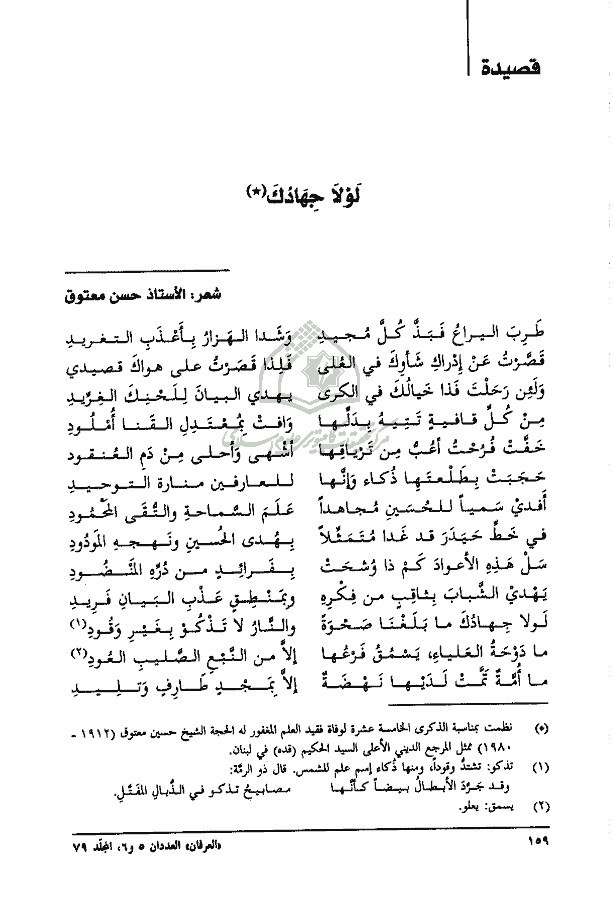 قصيدة
لَوْلَا جِهَادُكَ (*)
شعر: الأستاذ حسن معتوق
طَرِبَ اليراعُ فَبَذَّ كُلَّ مُجيدِ وَشَدا الهزارُ بِأَعْذَبِ التغريدِ
قَصَّرْتُ عَنْ إدْراكِ شأوِكَ في العُلى فَلِذا قَصَرْتُ على هواكَ قصيدي
وَلَئِن رَحَلْتَ فَذا خَيالُكَ في الكرى يهدي البيانَ لِلَحْنِكَ الغِرِّيدِ
مِنْ كُلِّ قافيةٍ تَتِيهُ بِدَلِّها وَافَتْ بِمُعْتَدِلِ القَنا أُمْلُودِ
خَفَّتْ فَرُحْتُ أعُبُّ مِن تَرْياقِها أشْهى وَأحلى مِنْ دَمِ العُنقودِ
حَجَبَتْ بِطَلْعتِها ذُكاء وَإنَّها للعارفينَ منارة التوحيدِ
أفديْ سَمياً للحُسَينِ مُجاهداً عَلَمَ السَّماحةِ والتُّقَى المَحْمُودِ
في خطِّ حيْدَرَ قد غدا مُتَمَثِّلاً بِهُدى الحُسينِ ونَهجِهِ المَوْدُودِ
سَلْ هَذِهِ الأعوادَ كَمْ ذا وُشِحَتْ بِفَرائِدٍ مِن دُرِّهِ المَنْضُودِ
يَهْدِيْ الشَّبابَ بِثاقِبٍ من فِكْرِهِ وبِمَنْطِقٍ عَذْبِ البَيانِ فَريدِ
لولا جِهادُكَ ما بَلَغْنا صَحْوَةً والنّارُ لا تَذْكُوْ بِغَيْرِ وَقُودِ (١)
ما دَوْحَةُ العلياءِ، يَسْمُقُ فَرْعُها إلاّ من النَّبْعِ الصَّليبِ العُودِ (٢)
ما أُمَّةٌ تَمَّتْ لَدَيْها نَهْضَةٌ إلاّ بِمَجْدٍ طَارِفٍ وَتَليدِ
(*) نظمت بمناسبة الذكرى الخامسة عشرة لوفاة فقيد العلم المغفور له الحجة الشيخ حسين معتوق (١٩١٢ -
١٩٨٠) ممثل المرجع الديني الأعلى السيد الحكيم (قده) في لبنان.
(١) تذكو: تشتدُّ وقوداً، ومنها ذُكاء إسم علم للشمس. قال ذو الرمّة:
وقد جرّة الأبطالُ بيضاً كأنّها مصابيحُ تذكو في الذُّبالِ المفتّلِ.
(٢) يسمق: يعلو.
١٥٩ «العرفان» العددان ٥ و٦، المجلّد ٧٩